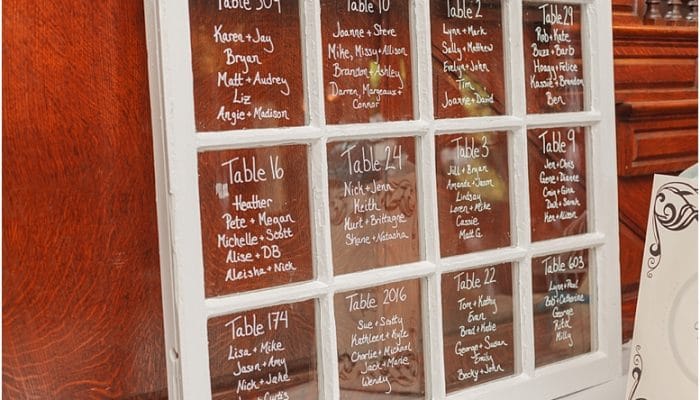 Table 304
Karen + Jay
Bryan
Matt + Audrey
Liz
Angie + Madison
Table 10
Joanne + Steve
Mike, Missy + Allison
Branson + Ashley
Darren, Margeaux +
Connor
Table 2
Lynn + Mark
Sally + Matthew
Evelyn + John
Tim
Joanne + David
Table 29
Rob + Kate
Buzz + Barb
Hoagy + Felice
Kassie + Brandon
Ben
Table 16
Heather
Pete + Megan
Michelle + Scott
Alise + DB
Aleisha + Nick
Table 24
Nick + Jenn
Keith
Kurt + Brittagne
Shane + Natasha
Table 3
Jill + Bryan
Amanda + Jason
Lindsay
Loren + Mike
Cassie
Matt G.
Table 9
Jen + Chris
Gene + Dianne
Craig + Gina
Dad + Sarah
Ken + Alison
Table 174
Lisa + Mike
Jason + Amy
Nick + Jackie
Curtis +
Table 2016
Sue + Scotty
Kathleen + Kyle
Charlie + Michael
Jack + Marie
Wendy
Table 22
Tom + Kathy
Evan
Brad + Katie
George + Susan
Emily
Becky + John
Table 603
Lynn + Paul
Bob + Catherine
George
Rita
Milly